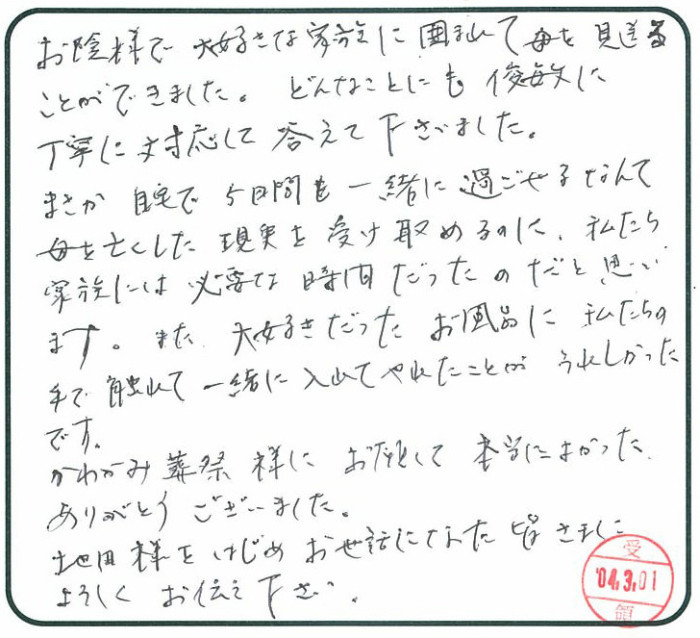 お陰様で 大好きな家族に囲まれて母を見送る
ことができました。どんなことにも俊敏に
丁寧に対応して答えて下さいました。
まさか自宅で5日間も一緒に過ごせるなんて
母を亡くした現実を受け取めるのに、私たち
家族には必要な時間だったのだと思い
ます。また、大好きだったお風呂に私たちの
手で触れて一緒に入れてやれたことがうれしかった
です。
かわかみ葬祭様にお願いして本当によかった。
ありがとうございました。
池田様をはじめお世話になった皆さまに
よろしくお伝え下さい。
受
'04.3.01
領